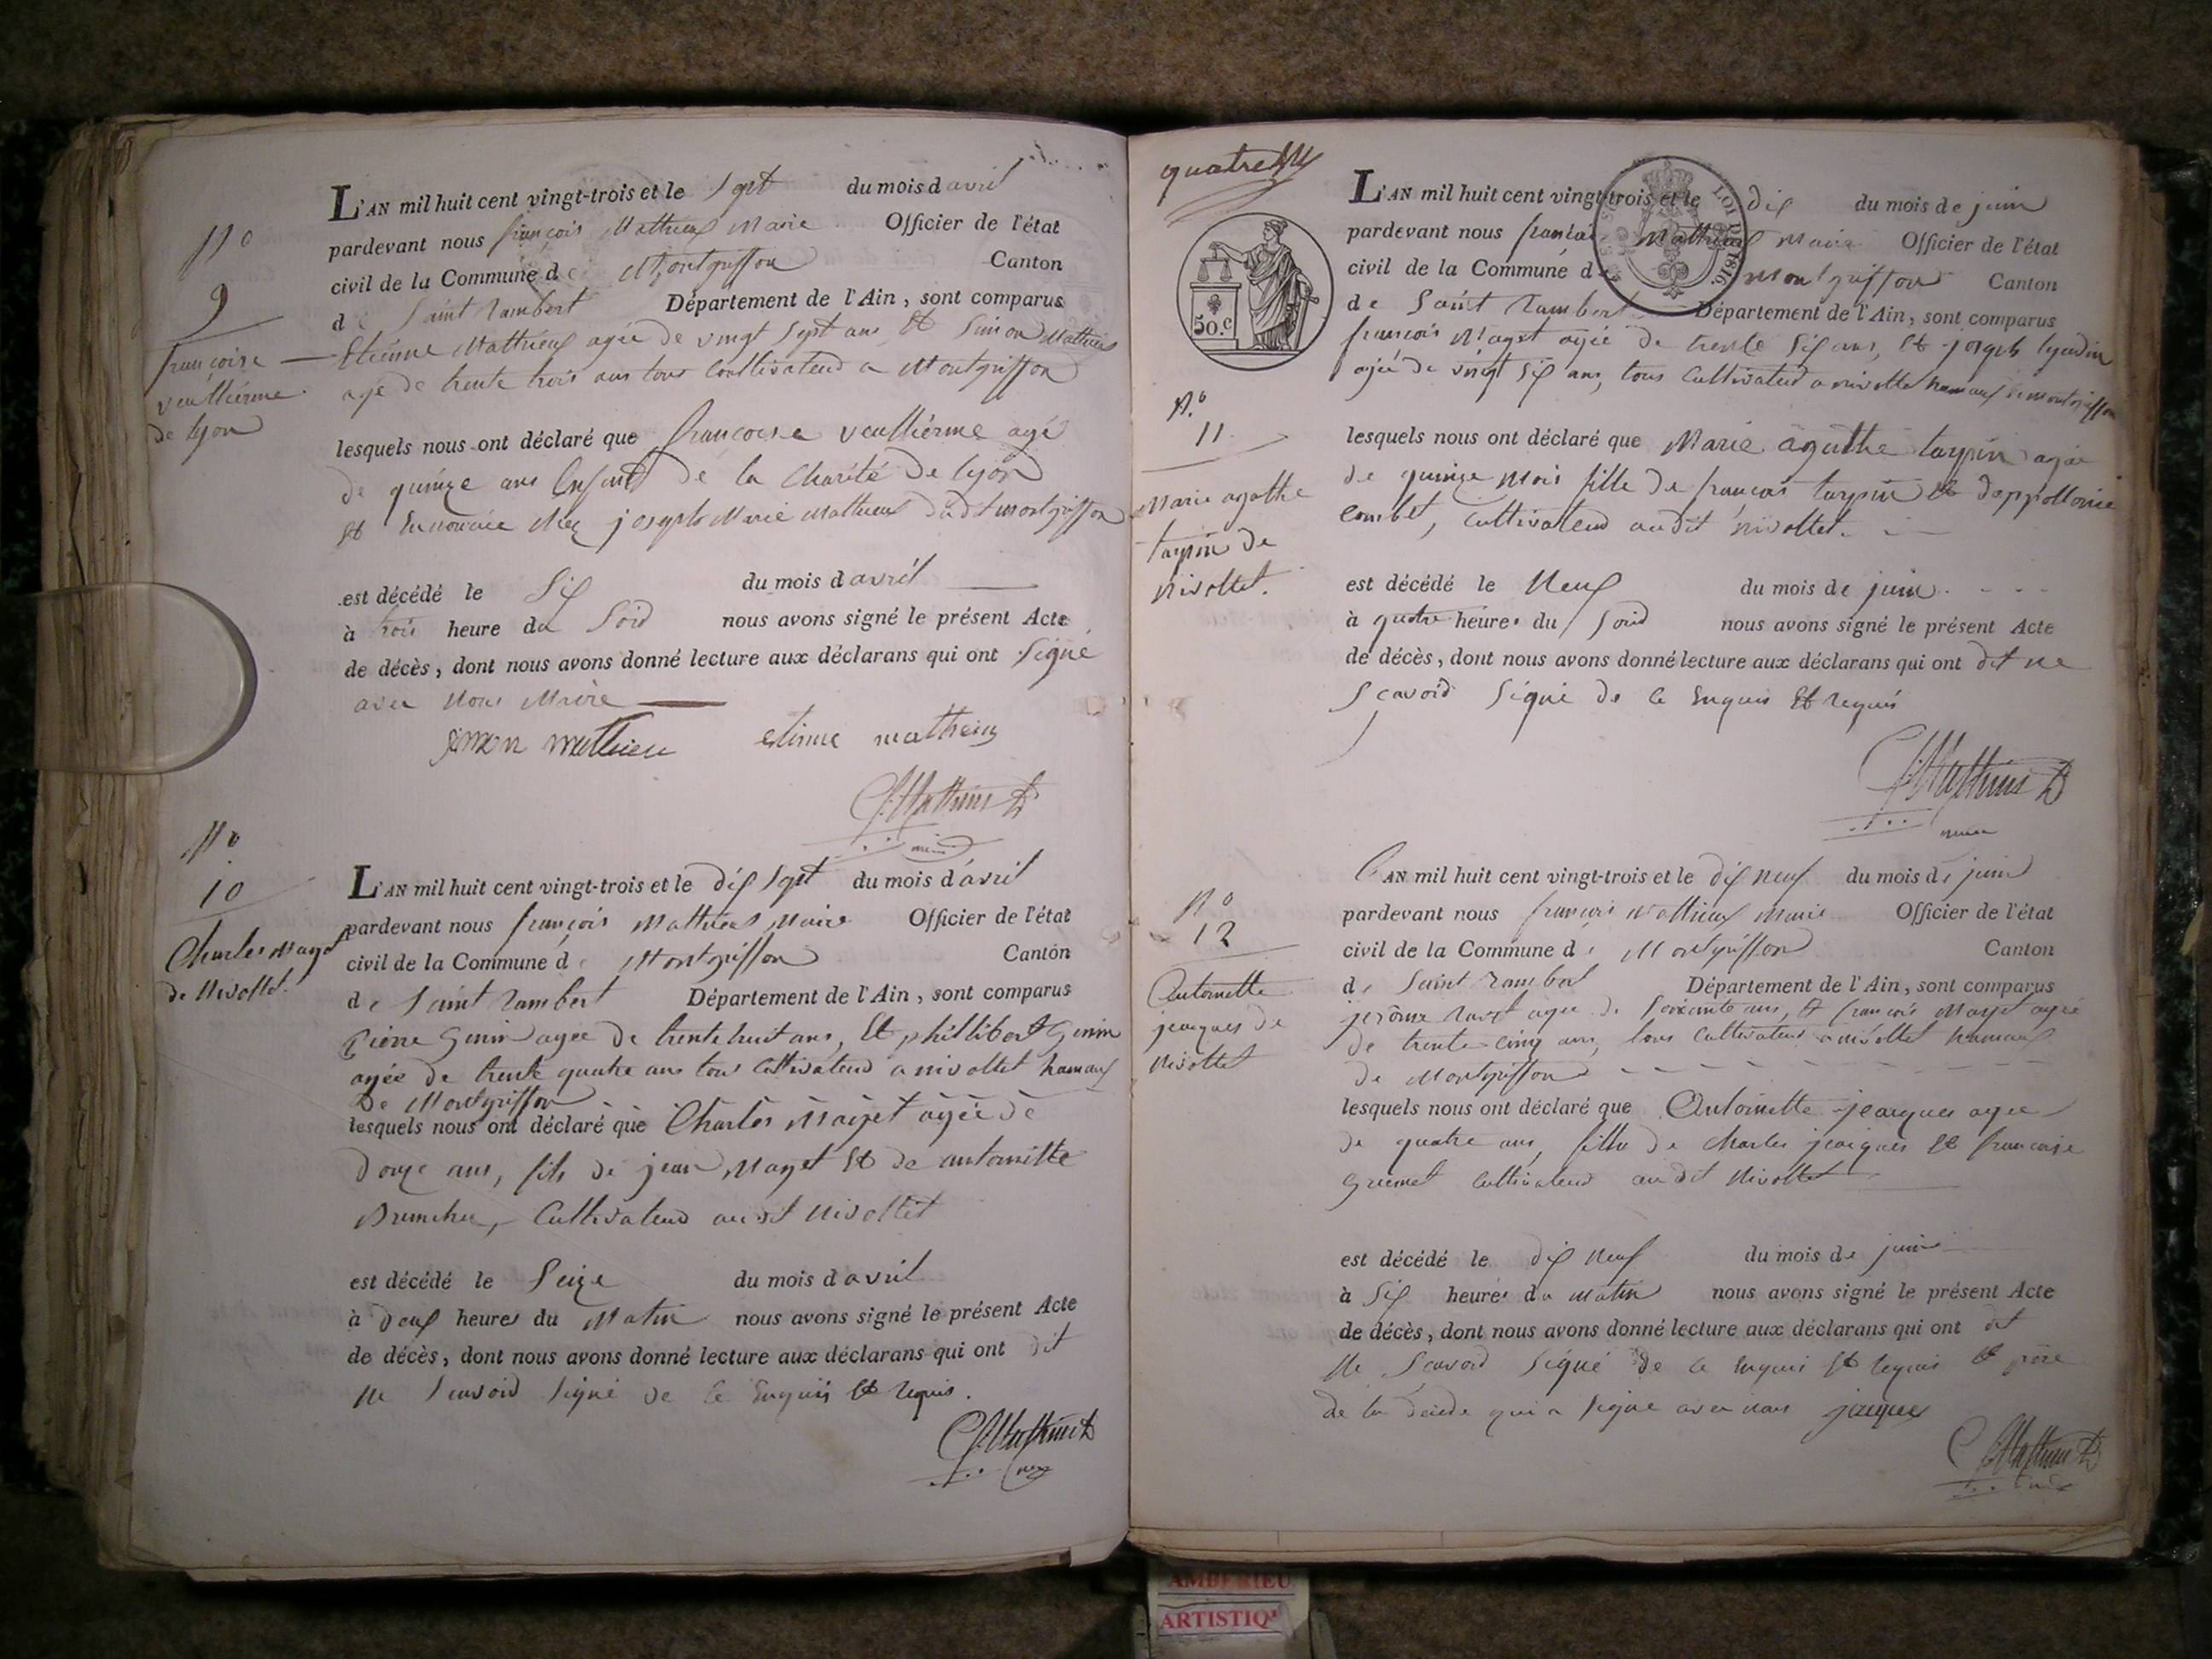 N.o
9
françoise
veulliérme
de lyon
L'AN mil huit cent vingt-trois et le sept du mois d avril
pardevant nous françois Mathieux Maire Officier de l'état
civil de la Commune de Montgriffon Canton
de Saint Rambert Département de l'Ain, sont comparus
Etienne Mathieux agée de vingt sept ans et Simon Mathieux
age de trente trois ans tous Coultivateud a Montgriffon
lesquels nous ont déclaré que francoise veulliérme agé
de quinze ans Enfant de la Charité de lyon
et Ennoncée chez joseph Marie Mathieux dudit montgriffon
est décédé le Six du mois d avril
à trois heure du Soid nous avons signé le présent Acte
de décès, dont nous avons donné lecture aux déclarans qui ont Signé
avec Nous Maire
simon mathieu etinne matheiu
f. Mathieux
N.o
10
Charles Mayet
de Nivollet.
L'AN mil huit cent vingt-trois et le dix sept du mois d'avril
pardevant nous françois Mathieux Maire Officier de l'état
civil de la Commune de Montgriffon Canton
de Saint Rambert Département de l'Ain, sont comparus
Pierre Genin agée de trente huit ans, Et phillibert Genin
agée de trente quatre ans tous Cultivateud a nivollet hamaux
De Montgriffon
lesquels nous ont déclaré que Charles Mayet agée de
douze ans, fils de jean Mayet Et de antoinette
Cultivateud audit Nivollet
est décédé le Seize du mois d avril
à deux heures du Matin nous avons signé le présent Acte
de décès, dont nous avons donné lecture aux déclarans qui ont dit
Ne Scavoid Signé de ce Enquis Et requis.
f. Mathieux
quatre
50.c
LOI DE 1816.
N.o
11
Marie agathe
taypin de
Nivollet.
L'AN mil huit cent vingt-trois et le dix du mois de juin
pardevant nous françois Mathieux Maire Officier de l'état
civil de la Commune de Montgriffon Canton
de Saint Rambert Département de l'Ain, sont comparus
francois Mayet agée de trente Six ans, Et joseph
agée de vingt Six ans, tous Cultivateud a nivollet hamaux de montgriffon
lesquels nous ont déclaré que Marie agathe taypin agée
de quinze Mois fille de françois taypin Et dappollonie
Combet, Cultivateud audit nivollet.
est décédé le Neuf du mois de juin
à quatre heures du Soid nous avons signé le présent Acte
de décès, dont nous avons donné lecture aux déclarans qui ont dit ne
Scavoid Signé de ce Enquis Et requis
f. Mathieux
maire
N.o
12
Antoinette
jeacques de
Nivollet
L'AN mil huit cent vingt-trois et le dix neuf du mois de juin
pardevant nous françois Mathieux Maire Officier de l'état
civil de la Commune de Montgriffon Canton
de Saint Rambert Département de l'Ain, sont comparus
jerôme agée de Soixante ans, Et francois Mayet agée
de trente-cinq ans, tous Cultivateud a nivollet hamaux
de Montgriffon
lesquels nous ont déclaré que Antoinette jeacques agée
de quatre ans, fille de Charles jeacques Et francoise
Gremet Cultivateud audit Nivollet
est décédé le dix Neuf du mois de juin
à Six heures du Matin nous avons signé le présent Acte
de décès, dont nous avons donné lecture aux déclarans qui ont dit
Ne Scavoid Signé de ce Enquis Et requis Et père
de la décédé qui a Signé avec nous jacques
f. Mathieux
AMBERIEU
ARTISTIQ